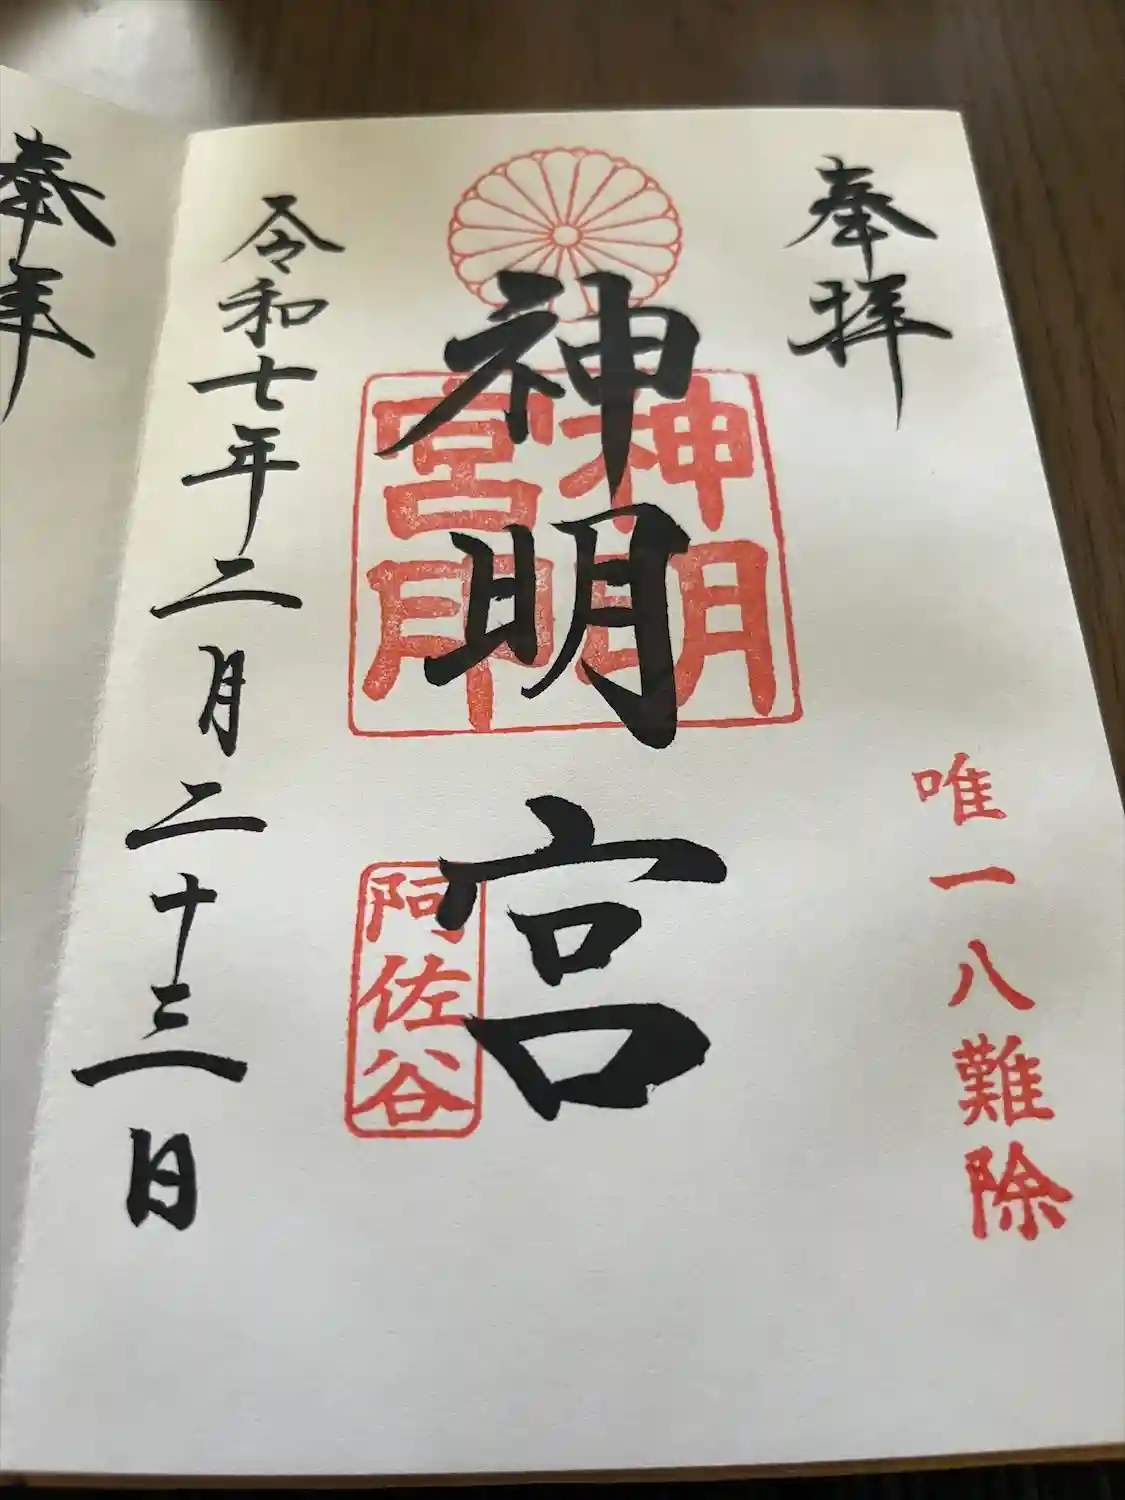 奉拝
唯一八難除
神明宮
神明
宮印
阿佐谷
令和七年二月二十三日
奉拝